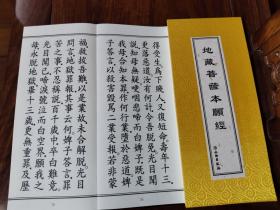 得受生為下賤人又復短命壽年十三
更落惡道汝有何計令吾脫免光目聞
說知母無疑哽咽悲啼而白婢子既是
我母合知本罪作何行業墮於惡道婢
子答言以殺害毀罵二業受報若非蒙
福救拔吾難以是業故未合解脫光目
問言地獄罪報其事云何婢子答言罪
苦之事不忍稱說百千歲中卒白難竟
光目聞已啼淚號泣而白空界願我之
母永脫地獄畢十三歲更無重罪及歷
地藏菩薩本願經